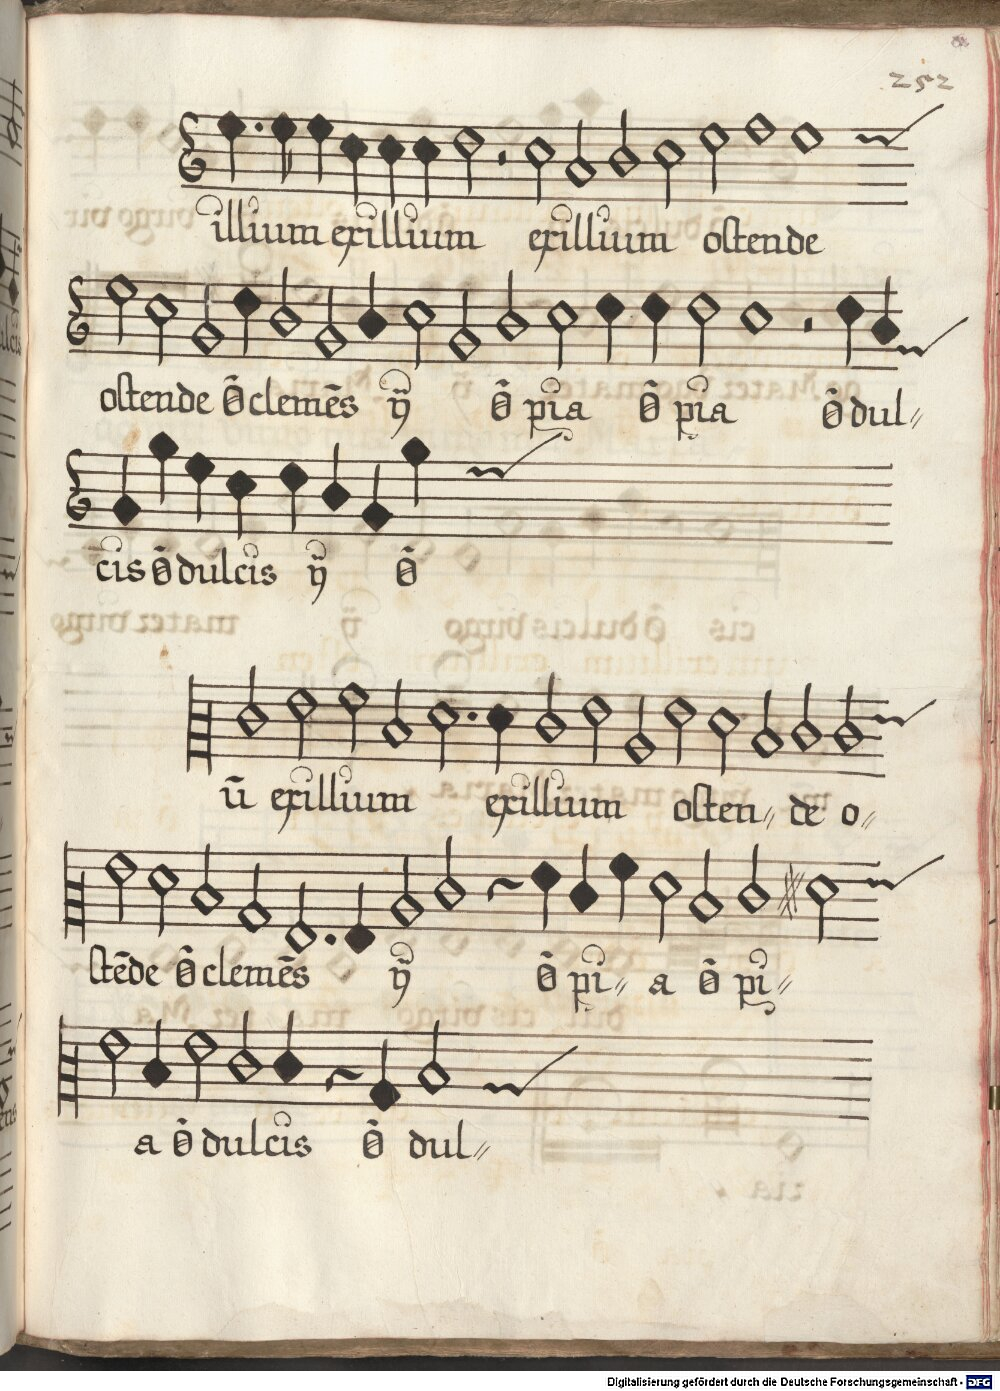 252
illium exillium exillium ostende
ostende Õ clemẽs ÿ Õ pia Õ pia Õ dul//
cis Õ dulcis ÿ Õ
ũ exillium exillium osten// de o//
stẽde Õ clemẽs ÿ Õ pi// a Õ pi//
a Õ dulcis Õ dul//
Digitalisierung gefördert durch die Deutsche Forschungsgemeinschaft - DFG